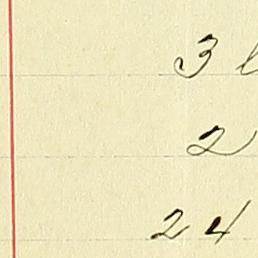 3
2
24